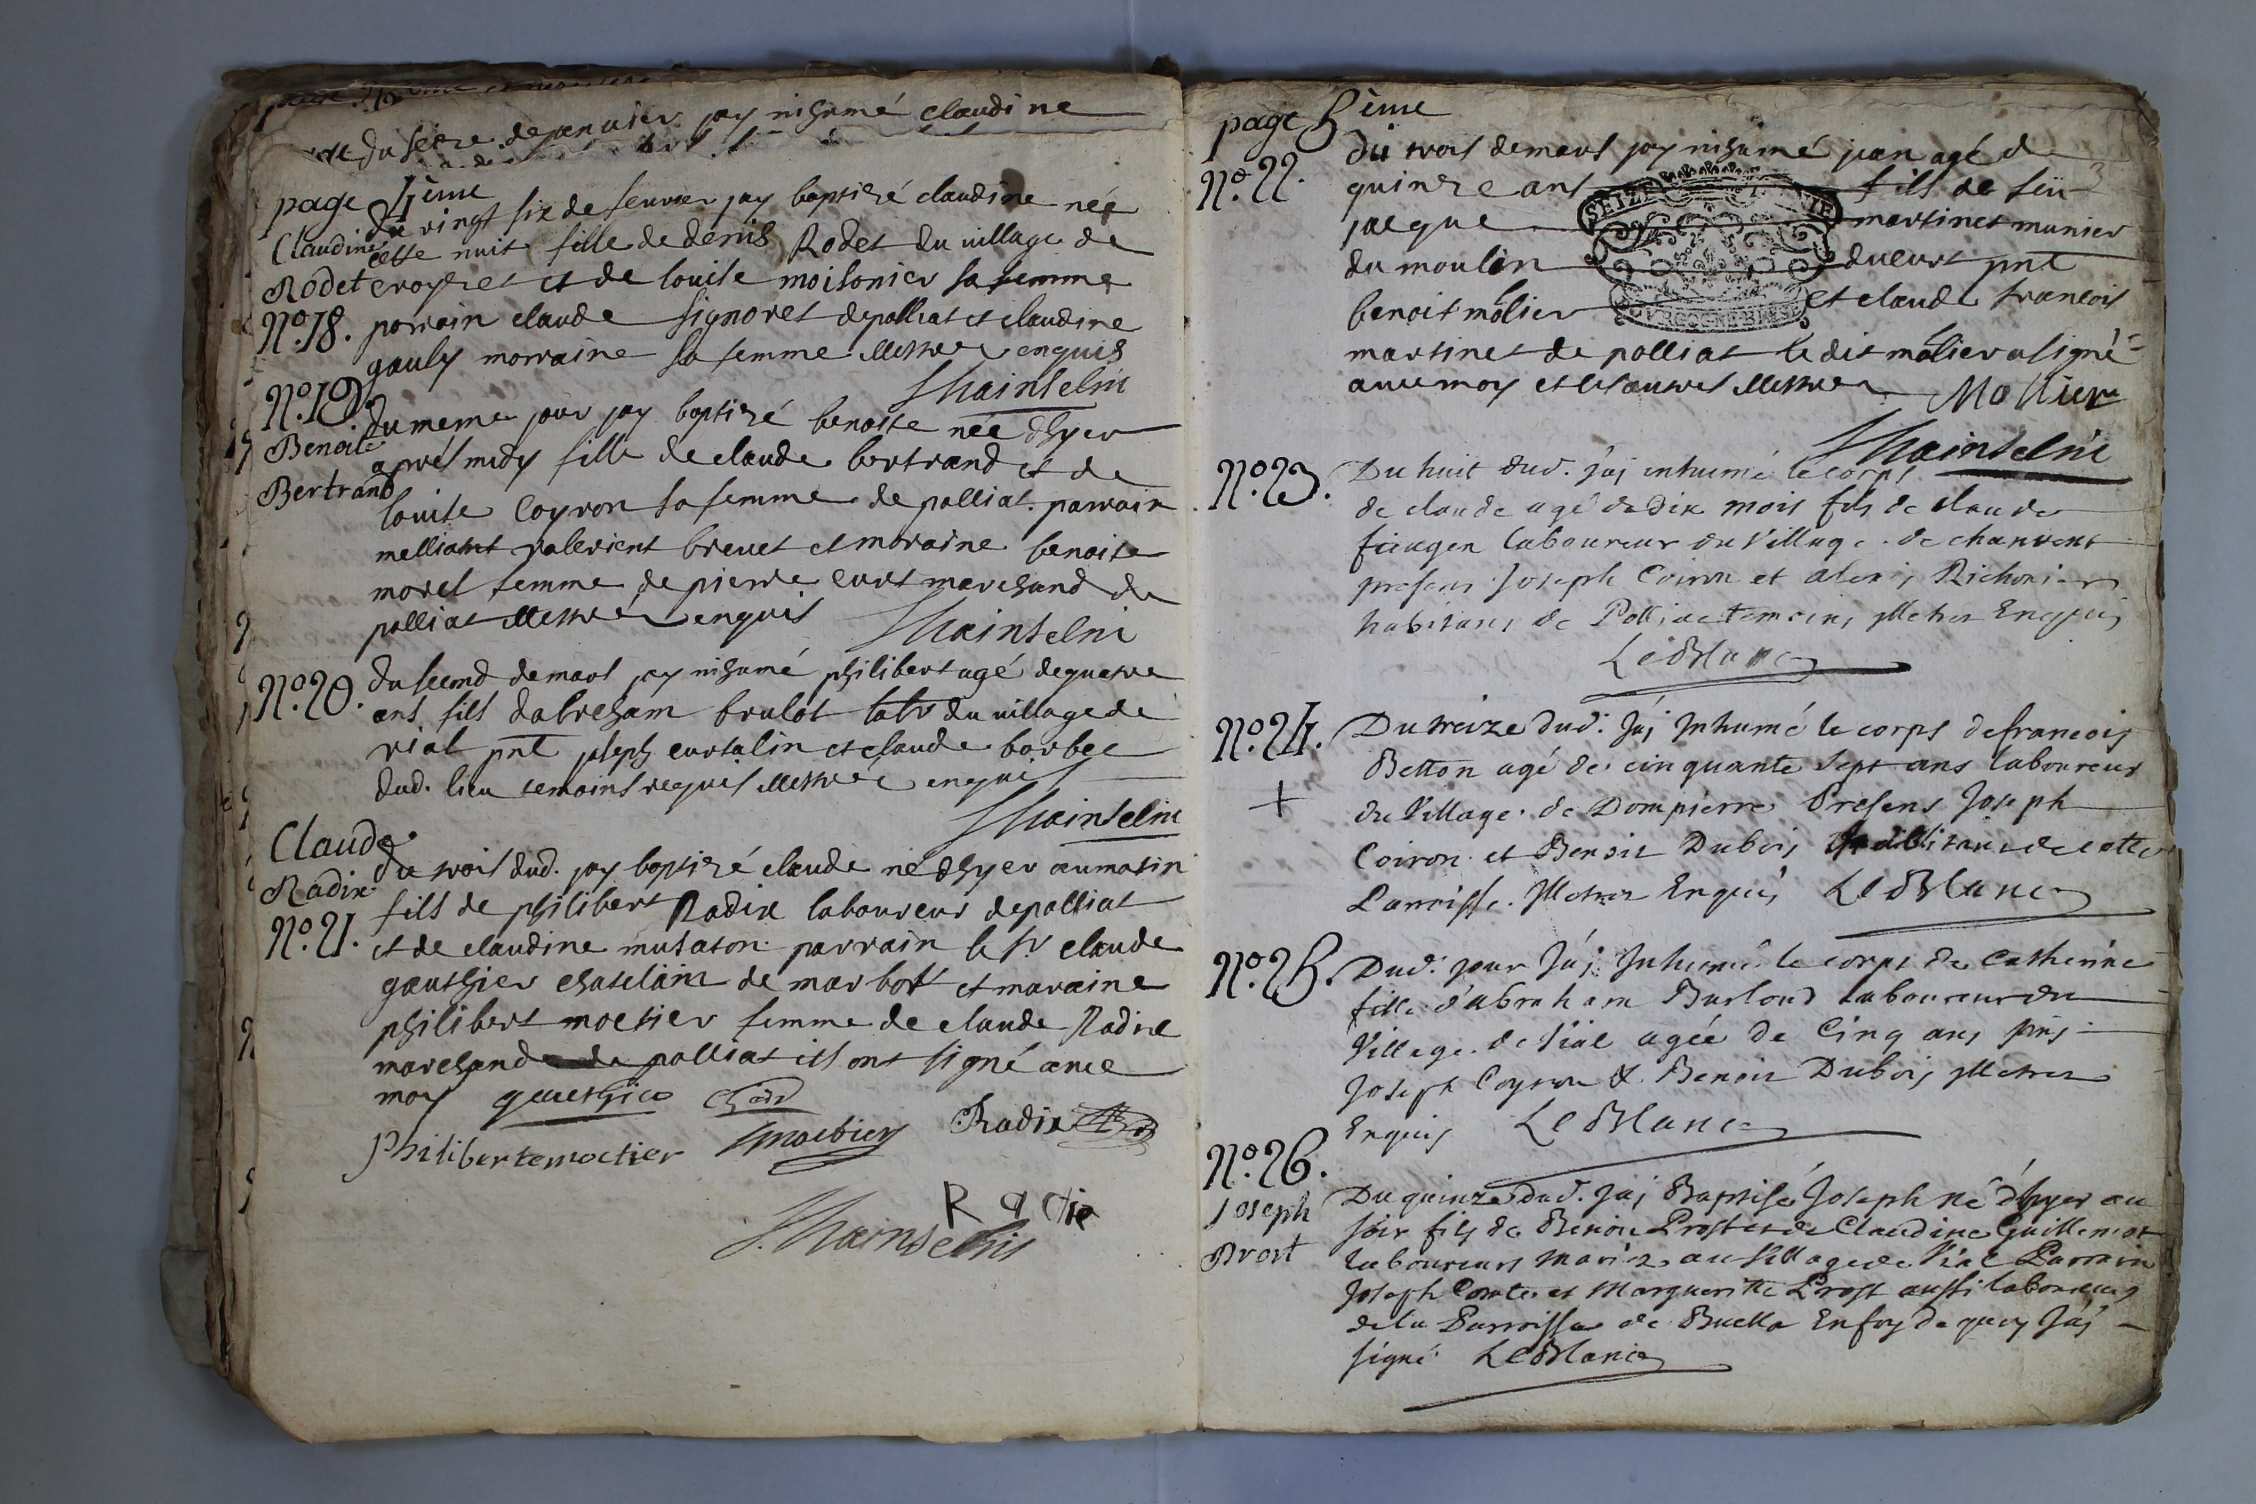 du seize de janvier jay inhumé claudine
page 4ème
Claudine
Rodet
N.º 18.
du vingt six de feuvrier jay baptizé claudine née
cette nuit fille de denis Rodet du uillage de
croyzet et de louise moisonier sa femme
parrain claude signoret depolliat et claudine
gauly marraine sa femme illettrez enquis
Jhainselin
N.º 19.
Benoite
Bertrand
du meme jour jay baptizé benoite née dhyer
aprés midy fille de claude bertrand et de
louise Coyron sa femme de polliat. parrain
brevet et moraine benoite
morel femme de pierre curt marchand de
polliat illettrez enquis
Jhainselin
N.º 20.
du second demars jay inhumé philibert agé dequatre
ans fils dabreham brulot labr du uillage de
vial pnt joseph cursalin et claude barbee
dud. lieu temoins requis illettrez enquis
Jhainselin
Claude
Radix
N.º 21.
du trois dud. jay baptizé claude né dhyer aumatin
fils de philibert Radix laboureur depolliat
et de claudine mutaton parrain le sr claude
gauthier chatelain de marbost et maraine
philibert moetier femme de claude Radix
marchand de polliat ils ont signé avec
moy gauthier
Philiberte moetier moetier Radix
Jhainselin
page 5ème
N.º 22.
du trois demars jay inhumé jean agé de
quinze ans fils de feu
jacque martinet munier
du moulin ducurt pnt
benoit molier et claude francois
martinet de polliat le dit molier a signé
avec moy et les autres illettrez Mollier
Jhainselin
N.º 23.
Du huit dud. j'aj inhumé le corps
de claude agé de dix mois fils de claude
laboureur du Village de chanvent
presens Joseph Coiron et alexis Richonier
habitans de Polliat temoins illetrez Enquis
LeBlanc
N.º 24.
+
Du treize dud. J'aj Inhumé le corps de francois
Betton agé de cinquante sept ans laboureur
du Village de Dompierre Presens Joseph
Coiron et Benoit Dubois habitans de cette
Parroisse. Illetrez Enquis LeBlanc
N.º 25.
Dud. jour J'aj Inhumé le corps de Catherine
fille d'abraham Burloud laboureur du
Village de Vial agée de Cinq ans pns
Joseph Coyron & Benoit Dubois illetrez
Enquis LeBlanc
N.º 26.
Joseph
Prost
Du quinze dud. J'aj Baptisé Joseph né d'hyer au
soir fils de Benoit Prost et de Claudine Guillemot
laboureurs mariez au Village de Vial Parrain
Joseph Comte et Margueritte Prost aussi laboureurs
de la Parroisse de Buella En foy de quoy J'aj
signé LeBlanc